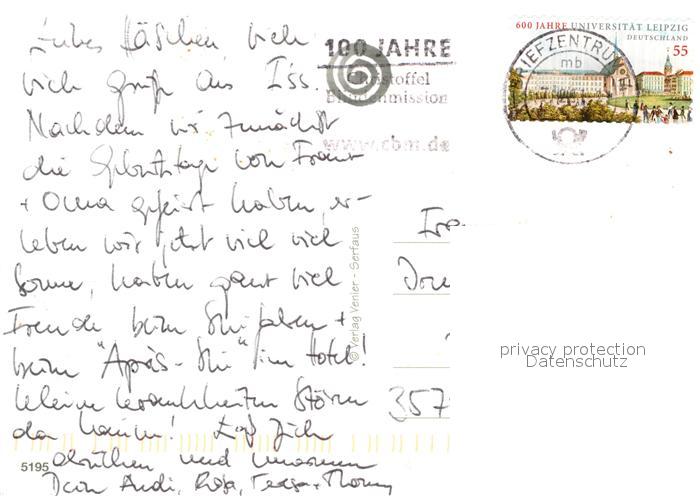 Liebes Häschen viele
viele grüße aus Iss.
Nachdem wir zunächst
die Geburtstage von Franz
+ Oma gefeiert haben, er-
leben wir jetzt viel viel
Sonne, haben ganz viel
Freude beim Skifahren +
beim "Après-Ski" im Hotel!
kleine Krankheiten stören
da kaum! Laß Dich
drücken und umarmen
Dein Andi,
100 JAHRE
Christoffel
Blindenmission
www.cbm.de
BRIEFZENTRUM
mb
600 JAHRE UNIVERSITÄT LEIPZIG
DEUTSCHLAND
55
© Verlag Venier - Serfaus
357
privacy protection
Datenschutz
5195